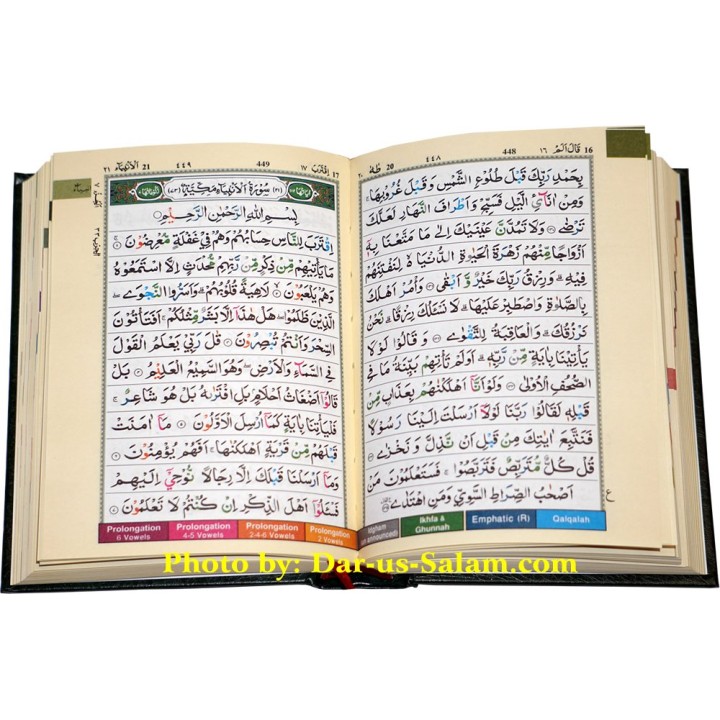 16 قَالَ اَلَمْ ١٦ 448 ٤٤٨ 20 طٰهٰ ٢٠
بِحَمْدِ رَبِّكَ قَبْلَ طُلُوْعِ الشَّمْسِ وَ قَبْلَ غُرُوْبِهَا ۚ
وَمِنْ اٰنَآئِ الَّيْلِ فَسَبِّحْ وَ اَطْرَافَ النَّهَارِ لَعَلَّكَ
تَرْضٰى وَلَا تَمُدَّنَّ عَيْنَيْكَ اِلٰى مَا مَتَّعْنَا بِهٖٓ
اَزْوَاجًا مِّنْهُمْ زَهْرَةَ الْحَيٰوةِ الدُّنْيَا ۙ لِنَفْتِنَهُمْ
فِيْهِ ؕ وَ رِزْقُ رَبِّكَ خَيْرٌ وَّ اَبْقٰى وَاْمُرْ اَهْلَكَ
بِالصَّلٰوةِ وَ اصْطَبِرْ عَلَيْهَا ؕ لَا نَسْـَٔلُكَ رِزْقًا ؕ نَحْنُ
نَرْزُقُكَ ؕ وَ الْعَاقِبَةُ لِلتَّقْوٰى وَ قَالُوْا لَوْ لَا
يَاْتِيْنَا بِاٰيَةٍ مِّنْ رَّبِّهٖ ؕ اَوَلَمْ تَاْتِهِمْ بَيِّنَةُ مَا فِى
الصُّحُفِ الْاُوْلٰى وَلَوْ اَنَّآ اَهْلَكْنٰهُمْ بِعَذَابٍ مِّنْ
قَبْلِهٖ لَقَالُوْا رَبَّنَا لَوْ لَآ اَرْسَلْتَ اِلَيْنَا رَسُوْلًا
فَنَتَّبِعَ اٰيٰتِكَ مِنْ قَبْلِ اَنْ نَّذِلَّ وَ نَخْزٰى
قُلْ كُلٌّ مُّتَرَبِّصٌ فَتَرَبَّصُوْا ۚ فَسَتَعْلَمُوْنَ مَنْ
اَصْحٰبُ الصِّرَاطِ السَّوِيِّ وَمَنِ اهْتَدٰى
ع
Ikhfa & Ghunnah
Emphatic (R)
Qalqalah
17 اِقْتَرَبَ ١٧ 449 ٤٤٩ 21 اَلْاَنْبِيَآء ٢١
سُوْرَةُ الْاَنْبِيَآءِ مَكِّيَّةٌ
بِسْمِ اللّٰهِ الرَّحْمٰنِ الرَّحِيْمِ
اِقْتَرَبَ لِلنَّاسِ حِسَابُهُمْ وَهُمْ فِيْ غَفْلَةٍ مُّعْرِضُوْنَ
مَا يَاْتِيْهِمْ مِّنْ ذِكْرٍ مِّنْ رَّبِّهِمْ مُّحْدَثٍ اِلَّا اسْتَمَعُوْهُ
وَهُمْ يَلْعَبُوْنَ لَاهِيَةً قُلُوْبُهُمْ ؕ وَاَسَرُّوا النَّجْوَى
الَّذِيْنَ ظَلَمُوْا هَلْ هٰذَآ اِلَّا بَشَرٌ مِّثْلُكُمْ ۚ اَفَتَاْتُوْنَ
السِّحْرَ وَاَنْتُمْ تُبْصِرُوْنَ قٰلَ رَبِّيْ يَعْلَمُ الْقَوْلَ
فِي السَّمَآءِ وَالْاَرْضِ وَهُوَ السَّمِيْعُ الْعَلِيْمُ بَلْ
قَالُوْٓا اَضْغَاثُ اَحْلَامٍۭ بَلِ افْتَرٰىهُ بَلْ هُوَ شَاعِرٌ
فَلْيَاْتِنَا بِاٰيَةٍ كَمَآ اُرْسِلَ الْاَوَّلُوْنَ مَآ اٰمَنَتْ
قَبْلَهُمْ مِّنْ قَرْيَةٍ اَهْلَكْنٰهَا ۚ اَفَهُمْ يُؤْمِنُوْنَ
وَمَآ اَرْسَلْنَا قَبْلَكَ اِلَّا رِجَالًا نُّوْحِيْٓ اِلَيْهِمْ
فَسْـَٔلُوْٓا اَهْلَ الذِّكْرِ اِنْ كُنْتُمْ لَا تَعْلَمُوْنَ
Prolongation 6 Vowels
Prolongation 4-5 Vowels
Prolongation 2-4-6 Vowels
Prolongation 2 Vowels
Photo by: Dar-us-Salam.com